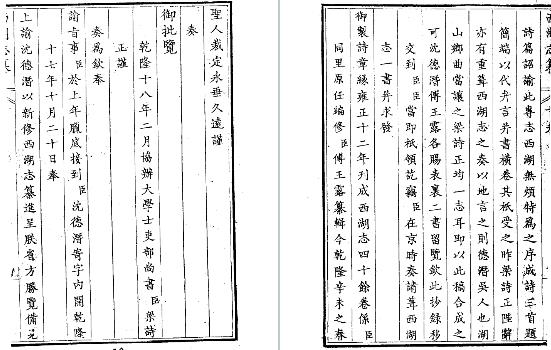 聖人裁定永垂久遠謹
奏
御批覽
乾隆十八年二月協辦大學士吏部尚書臣梁詩
正謹
奏為欽奉
諭旨事臣於上年臘底接到臣沈德潛寄字內開乾隆
十七年十月二十日奉
上諭沈德潛以新修西湖志纂進呈朕省方勝覽備見
詩篇認諭此專志西湖無煩特為之序成詩三首題
簡端以代弁言并書橫卷其祇受之昨梁詩正陛辭
亦有重葺西湖志之奏以地言之則德潛吳人也湖
山鄉曲當讓之梁詩正均一志耳即以此稿合成之
可沈德潛傅王露各賜衣裏二書留覽欽此抄錄移
交到臣臣當即祇領訖竊臣在京時奏請葺西湖
志一書并求發
御製詩章緣雍正十二年刋成西湖志四十餘卷係臣
同里原任編修臣傅王露纂輯今乾隆辛未之春